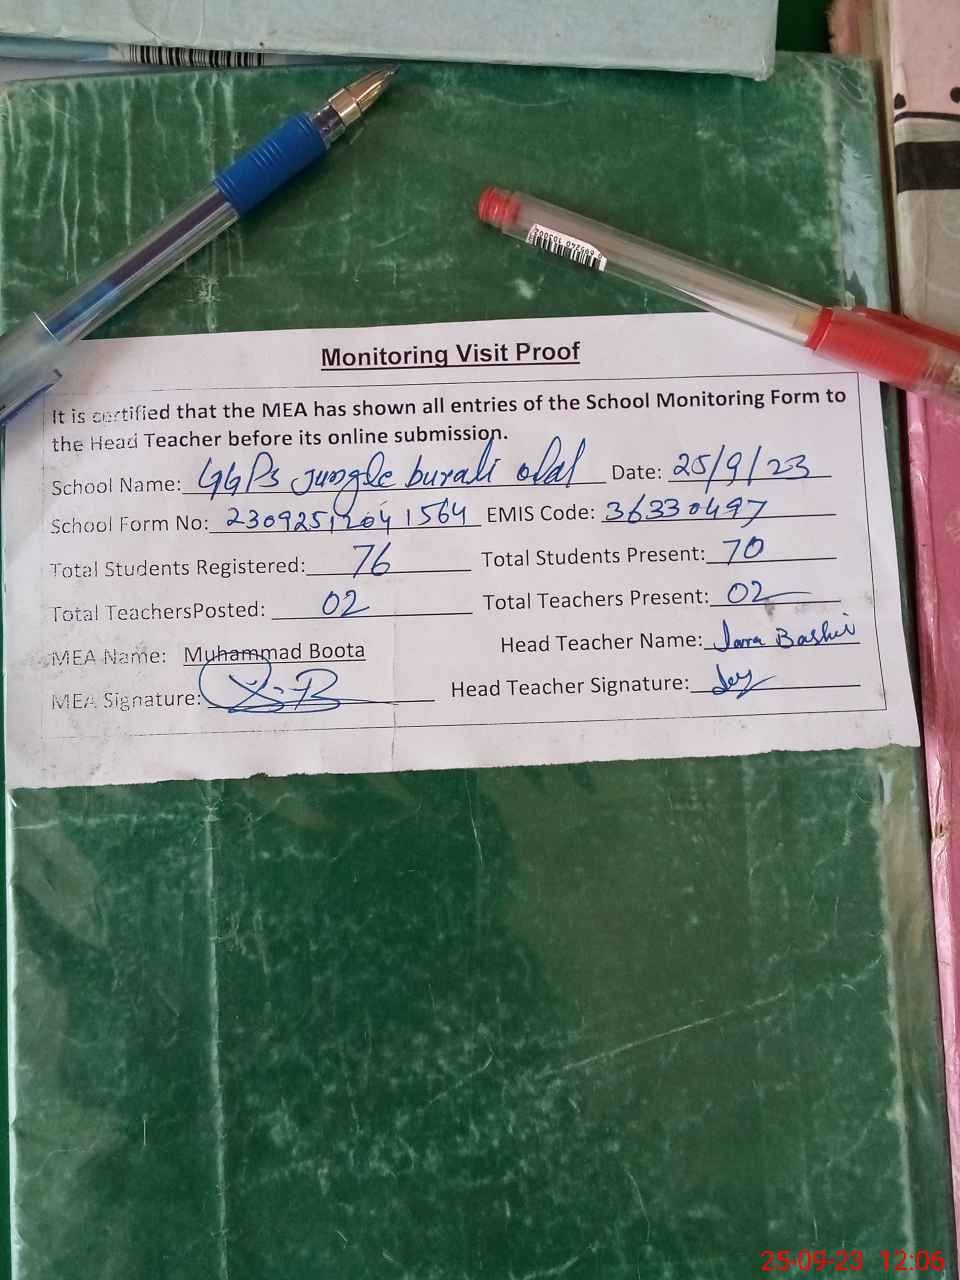 Monitoring Visit Proof
It is certified that the MEA has shown all entries of the School Monitoring Form to
the Head Teacher before its online submission.
School Name: GGPS Jungle burali olal Date: 25/9/23
School Form No: 23092512041564 EMIS Code: 36330497
Total Students Registered: 76 Total Students Present: 70
Total TeachersPosted: 02 Total Teachers Present: 02
MEA Name: Muhammad Boota Head Teacher Name: Bashir
MEA Signature: Head Teacher Signature:
25-09-23 12:06